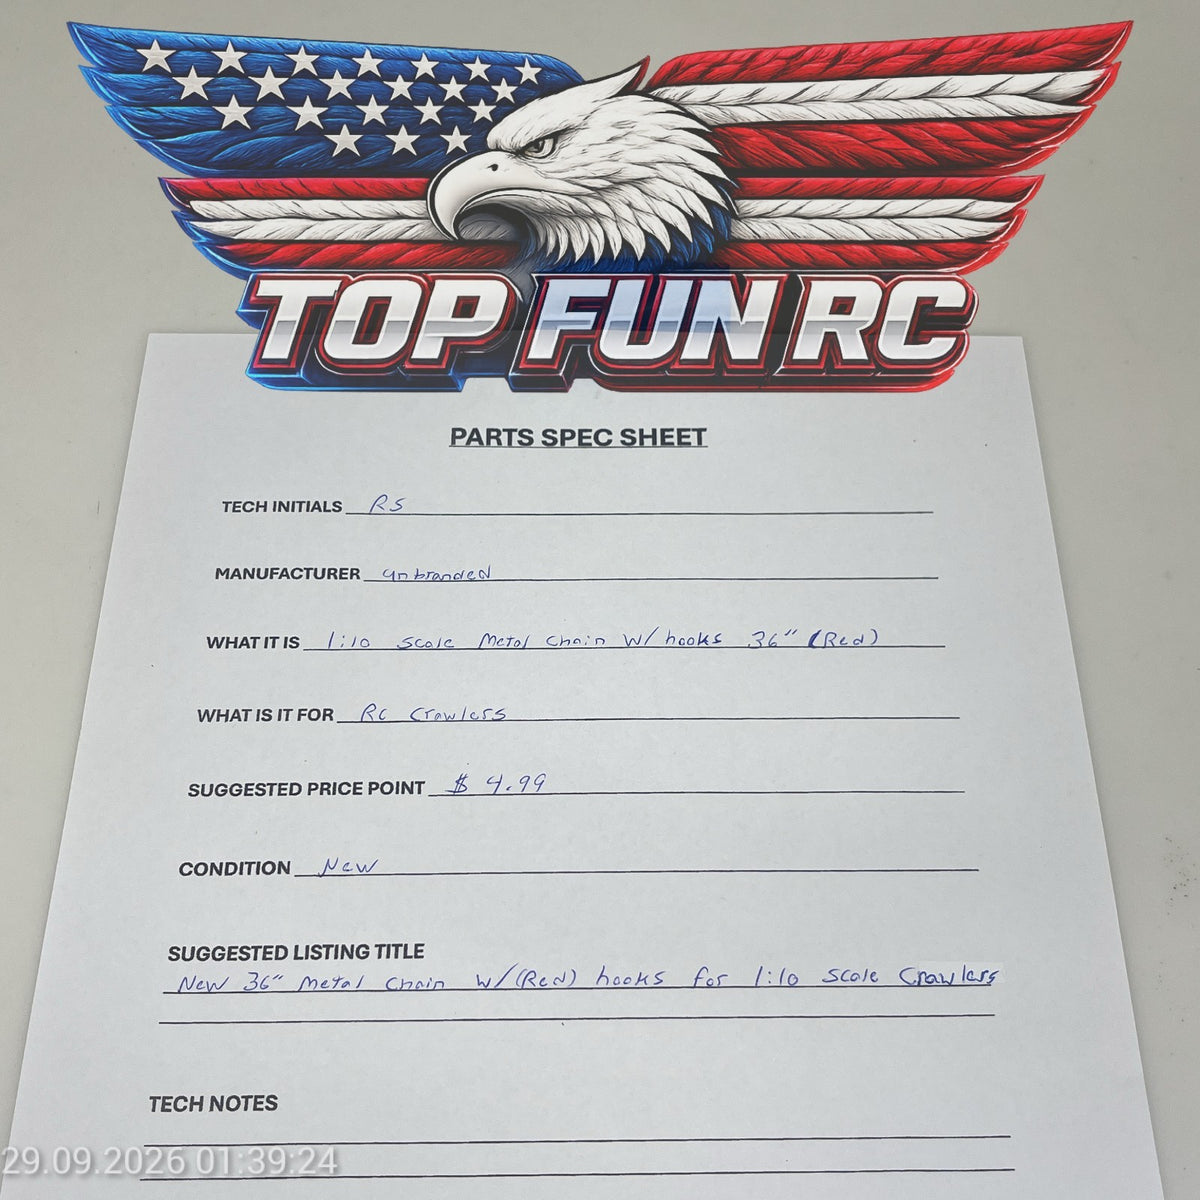 TOP FUN RC
PARTS SPEC SHEET
TECH INITIALS RS
MANUFACTURER unbranded
WHAT IT IS 1:10 Scale Metal Chain W/ hooks 36" (Red)
WHAT IS IT FOR RC Crawlers
SUGGESTED PRICE POINT $ 4.99
CONDITION New
SUGGESTED LISTING TITLE
New 36" Metal Chain W/(Red) hooks for 1:10 Scale Crawlers
TECH NOTES
29.09.2026 01:39:24